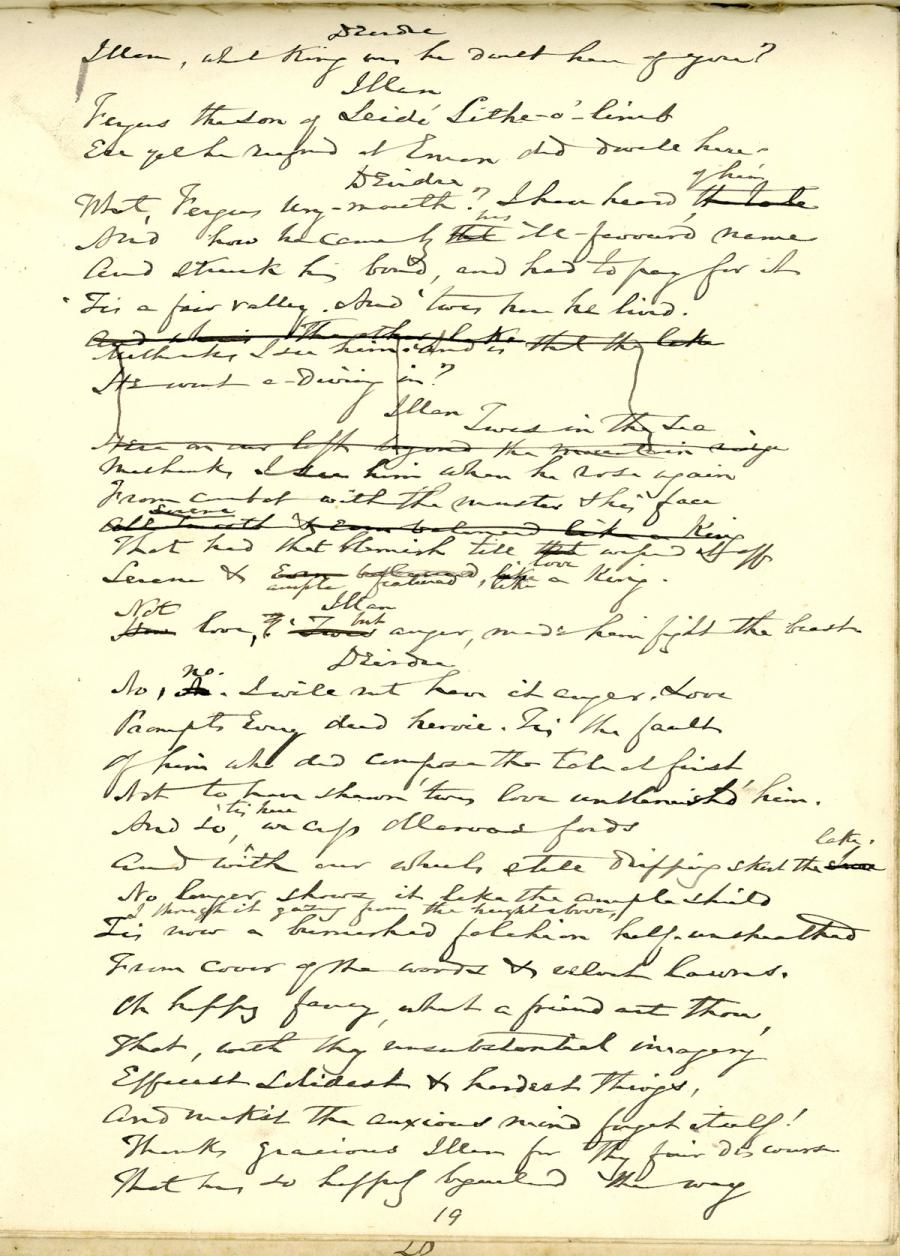 Deirdre
Illan, what King was he dwelt here of yore?
Illan
Fergus the son of Leidé Lithe-o'-limb
Ere yet he reigned at Eman did dwell here.
Deirdre
of him
What, Fergus Wry-mouth? I have heard, the tale
his
And how he came by that ill-favour'd name
And struck his bond, and had to pay for it
'Tis a fair valley. And 'twas here he lived.
And where The other lake
Methinks I see him: and is that the lake
He went a-Diving in?
Illan
'Twas in the Sea
Here on our left beyond the mountain ridge
Methinks I see him when he rose again
From combat with the monster & his face
serene
All smooth & even-balanced like a King
That had that blemish till that wiped it off
love
Serene & Even balanced, like a King.
ample featured like
Illan
Not
love, but anger, made him fight the beast.
Deirdre
no.
No, . I will not have it anger. Love
Prompts Every deed heroic. 'Tis the fault
Of him who did compose the tale at first
Not to have shewn 'twas love unblemish'd him.
'tis here
And so, we
And with our wheels still dripping skirt the shore
lake.
No longer shows it like the ample shield
I thought it gazing from the height above,
'Tis now a burnished falchion half-unsheathed
From cover of the woods & velvet lawns.
Oh happy fancy, what a friend art thou,
That, with thy unsubstantial imagery
Effacest Solidest & hardest things,
And mak'st the anxious mind forget itself!
Thanks gracious Illan for thy fair discourse
That has so happily beguiled the way
19
20